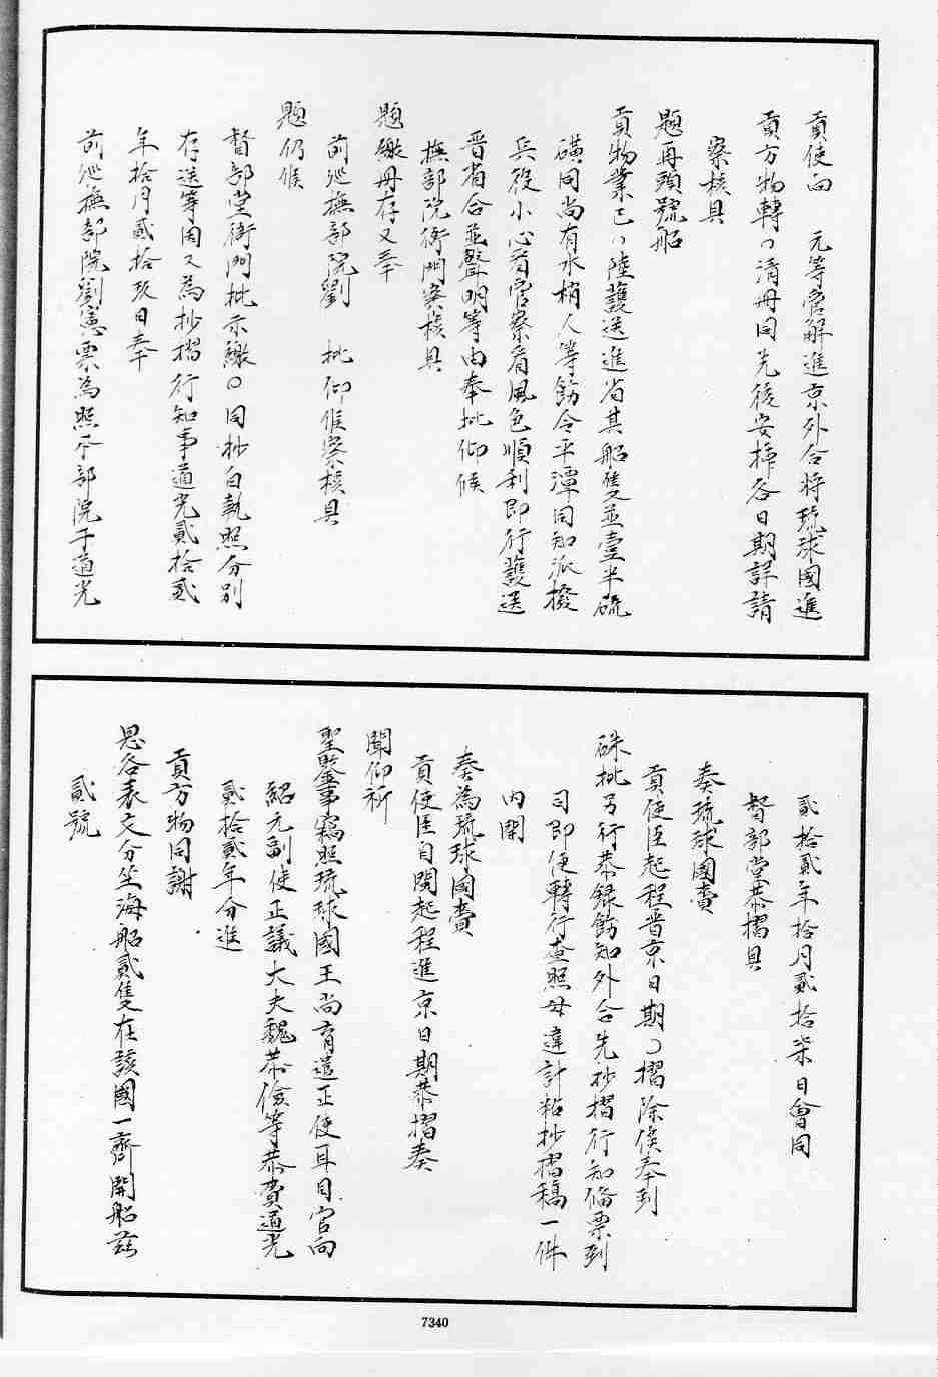 貢使向　元等官解進京外合將琉球國進
貢方物轉〻清冊同先後安揷各日期詳請
察核具
題再頭號船
貢物業已〻陸護送進省其船隻並壹半硫
磺同尚有水梢人等飭令平潭同知派撥
兵役小心看官察看風色順利即行護送
晋省合並聲明等由奉批仰候
撫部院衙門察核具
題繳冊存又奉
前巡撫部院劉　批仰候察核具
題仍候
督部堂衙門批示繳〇同抄白執照分別
存送等因又為抄摺行知事道光貳拾貳
年拾月貳拾玖日奉
前巡撫部院劉憲票為照本部院于道光
貳拾貳年拾月貳拾柒日會同
督部堂恭摺具
奏琉球國賫
貢使臣起程晋京日期〻摺除俟奉到
硃批另行恭録飭知外合先抄摺行知備票到
司即便轉行查照毋違計粘抄摺稿一件
內開
奏為琉球國賫
貢使臣自閩起程進京日期恭摺奏
聞仰祈
聖鑒事竊照琉球國王尚育遣正使耳目官向
紹元副使正議大夫魏恭儉等恭賫道光
貳拾貳年分進
貢方物同謝
恩各表文分坐海船貳隻在該國一齊開船茲
貳號
7340